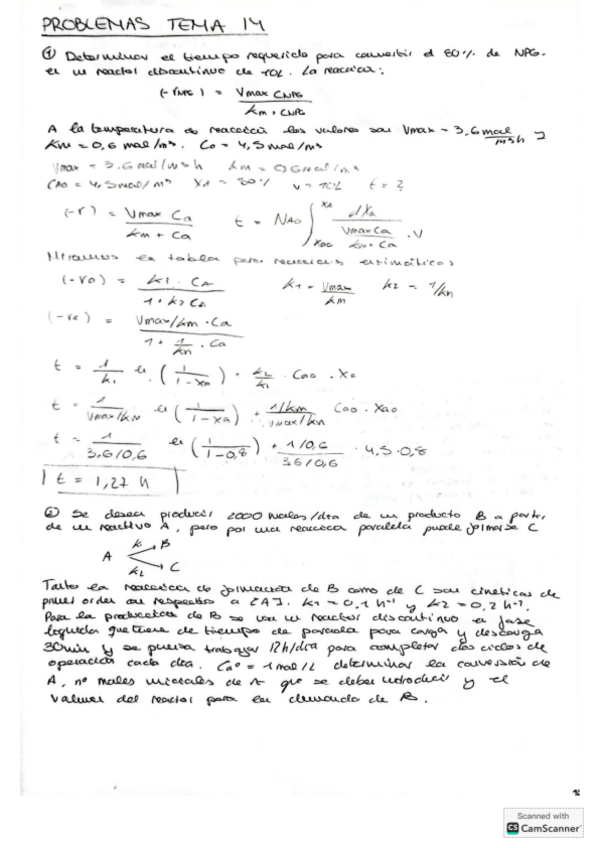 PROBLEMAS TEMA 14
① Determinar el tiempo requerido para convertir el 80% de NPG.
en un reactor discontinuo de 10L. La reacción:
(-rNPG) = Vmax CNPG / km + CNPG
A la temperatura de reacción los valores son Vmax = 3,6 mol/m³h y
km = 0,6 mol/m³. Co = 4,5 mol/m³
Vmax = 3.6 mol/m³h km = 0,6 mol/m³
CAO = 4,5 mol/m³ XA = 80% V = 10L t = ?
(-r) = Vmax Ca / km + Ca t = NAO ∫ XAO XA dXa / Vmax Ca / km + Ca · V
Miramos en tabla para reacciones enzimáticas
(-ra) = k1 · CA / 1 + k2 CA k1 = Vmax / km k2 = 1/km
(-ra) = Vmax/km · Ca / 1 + 1/km · Ca
t = 1/k1 ln (1 / 1-Xa) + k2/k1 · Cao · Xa
t = 1 / Vmax/km ln (1 / 1-Xa) + 1/km / Vmax/km Cao · Xao
t = 1 / 3,6/0,6 ln (1 / 1-0,8) + 1/0,6 / 3,6/0,6 · 4,5 · 0,8
t = 1,27 h
② Se desea producir 2000 moles/día de un producto B a partir
de un reactivo A, pero por una reacción paralela puede formarse C
k1 B
A
k2 C
Tanto la reacción de formación de B como de C son cinéticas de
primer orden con respecto a [A]. k1 = 0,1 h⁻¹ y k2 = 0,2 h⁻¹.
Para la producción de B se usa un reactor discontinuo en fase
líquida que tiene de tiempo de parada para carga y descarga
30min y se puede trabajar 12h/día para completar dos ciclos de
operación cada día. Cao = 1 mol/L determinar la conversión de
A, nº moles iniciales de A que se deben introducir y el
volumen del reactor para la demanda de B.
Scanned with
CS CamScanner